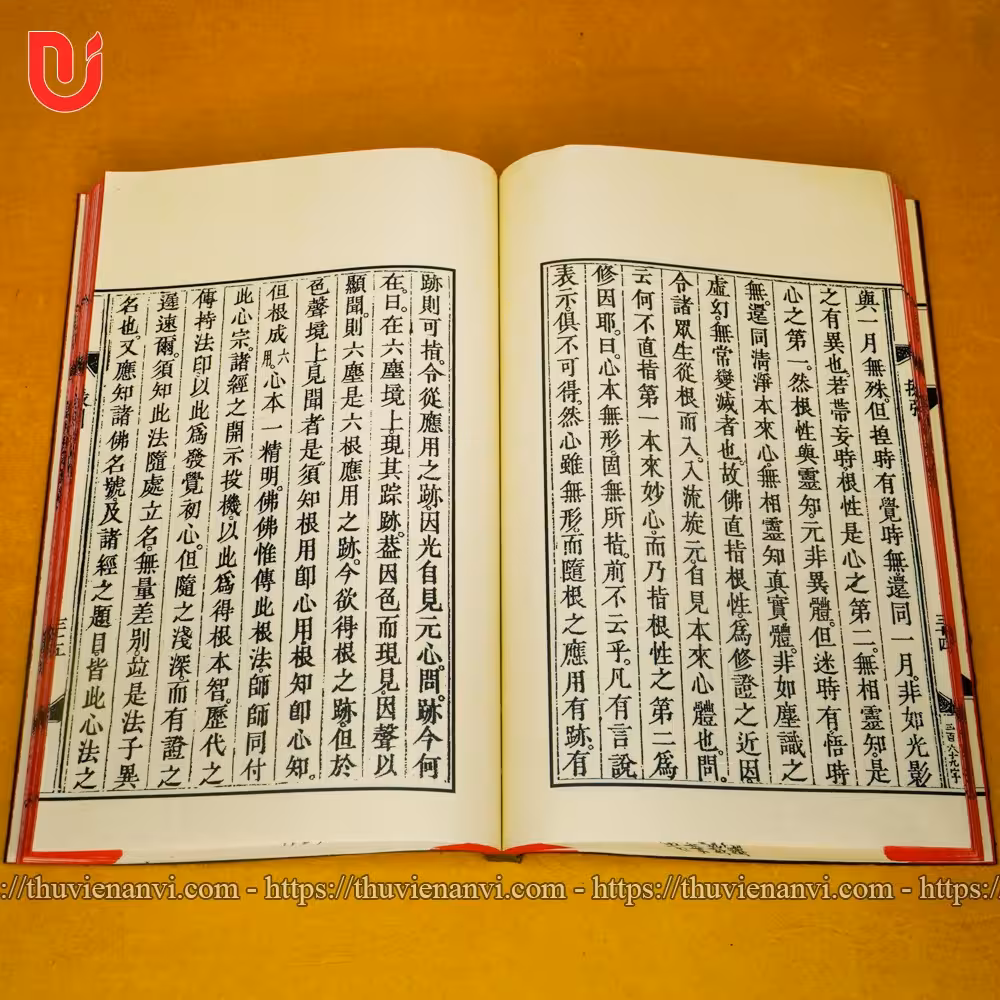 與一月無殊。但揑時有覺時無。還同一月。非如光影
之有異也。若帶妄時。根性是心之第二。無相靈知。是
心之第一。然根性與靈知。元非異體。但迷時有。悟時
無。還同清淨本來心。無相靈知真實體。非如塵識之
虛幻。無常變滅者也。故佛直指根性。爲修證之近因。
令諸眾生從根而入。入流旋元。自見本來心體也。問。
云何不直指第一本來妙心。而乃指根性之第二爲
修因耶。曰。心本無形。固無所指。前不云乎。凡有言說
表示。俱不可得。然心雖無形。而隨根之應用有跡。有
跡則可指。令從應用之跡。因光自見元心。問。跡今何
在。曰。在六塵境上。現其踪跡。葢因色而現見。因聲以
顯聞。則六塵是六根應用之跡。今欲得根之跡。但於
色聲境上見聞者是。須知根用卽心用。根知卽心知。
但根成六用。心本一精明。佛佛惟傳此根法。師師同付
此心宗。諸經之開示投機。以此爲得根本智。歷代之
傳持法印。以此爲發覺初心。但隨之淺深。而有證之
遲速爾。須知此法。隨處立名。無量差別。竝是法子異
名也。又應知諸佛名號。及諸經之題目。皆此心法之
三十四
三百八十九字
三十五
https://thuvienanvi.com - https://thuvienanvi.com - https://thuvienanvi.com - https://